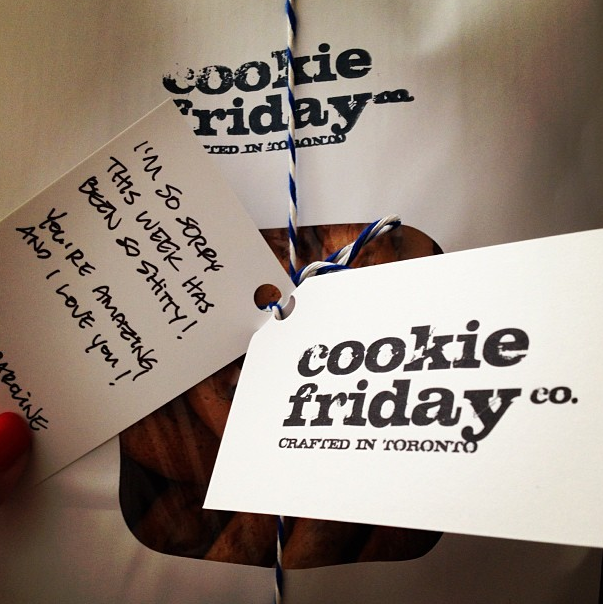 cookie
friday co.
CRAFTED IN TORONTO
I'M SO SORRY
THIS WEEK HAS
BEEN SO SHITTY!
YOU'RE AMAZING
AND I LOVE YOU!
cookie
friday co.
CRAFTED IN TORONTO